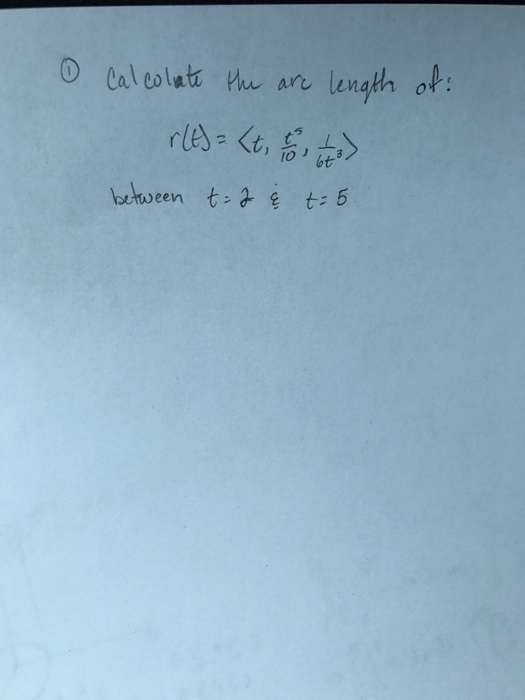 ① Calculate the arc length of:
r(t) = <t, t⁵/10, 1/6t³>
between t=2 & t=5